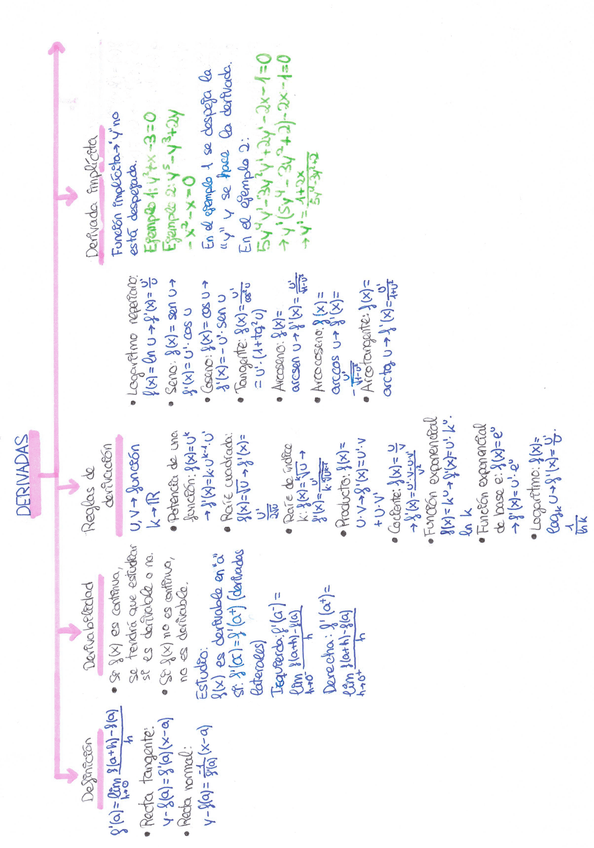 DERIVADAS
Definición
f'(a) = lim h→0 f(a+h)-f(a) / h
• Recta tangente:
y-f(a)=f'(a)(x-a)
• Recta normal:
y-f(a)= -1/f'(a) (x-a)
Derivabilidad
• Si f(x) es continua,
se tendrá que estudiar
si es derivable o no.
• Si f(x) no es continua,
no es derivable.
Estudio:
f(x) es derivable en "a"
si f'(a⁻)=f'(a⁺) (derivadas
laterales)
Izquierda: f'(a⁻)=
lim h→0⁻ f(a+h)-f(a) / h
Derecha: f'(a⁺)=
lim h→0⁺ f(a+h)-f(a) / h
Reglas de
derivación
u, v → función
k → ℝ
• Potencia de una
función: f(x)=uᵏ
→ f'(x)=k·uᵏ⁻¹·u'
• Raíz cuadrada:
f(x)=√u → f'(x)=
u' / 2√u
• Raíz de índice
k: f(x)=ᵏ√u →
f'(x)= u' / k·ᵏ√uᵏ⁻¹
• Producto: f(x)=
u·v → f'(x)=u'·v
+u·v'
• Cociente: f(x)= u/v
→ f'(x)= u'·v-u·v' / v²
• Función exponencial
f(x)=kᵘ → f'(x)=u'·kᵘ·
ln k
• Función exponencial
de base e: f(x)=eᵘ
→ f'(x)=u'·eᵘ
• Logaritmo: f(x)=
logₖ u → f'(x)= u'/u ·
1 / ln k
• Logaritmo neperiano:
f(x)=ln u → f'(x)= u'/u
• Seno: f(x)=sen u →
f'(x)=u'·cos u
• Coseno: f(x)=cos u →
f'(x)=-u'·sen u
• Tangente: f(x)= u' / cos²u
=u'·(1+tg²u)
• Arcoseno: f(x)=
arcsen u → f'(x)= u' / √1-u²
• Arcocoseno: f(x)=
arccos u → f'(x)=
- u' / √1-u²
• Arcotangente: f(x)=
arctg u → f'(x)= u' / 1+u²
Derivada implícita
Función implícita → "y" no
está despejada.
Ejemplo 1: y²+x-3=0
Ejemplo 2: y⁵-y³+2y
-x²-x=0
En el ejemplo 1 se despeja la
"y" y se hace la derivada.
En el ejemplo 2:
5y⁴y'-3y²y'+2y'-2x-1=0
→ y'(5y⁴-3y²+2)-2x-1=0
→ y'= 1+2x / 5y⁴-3y²+2